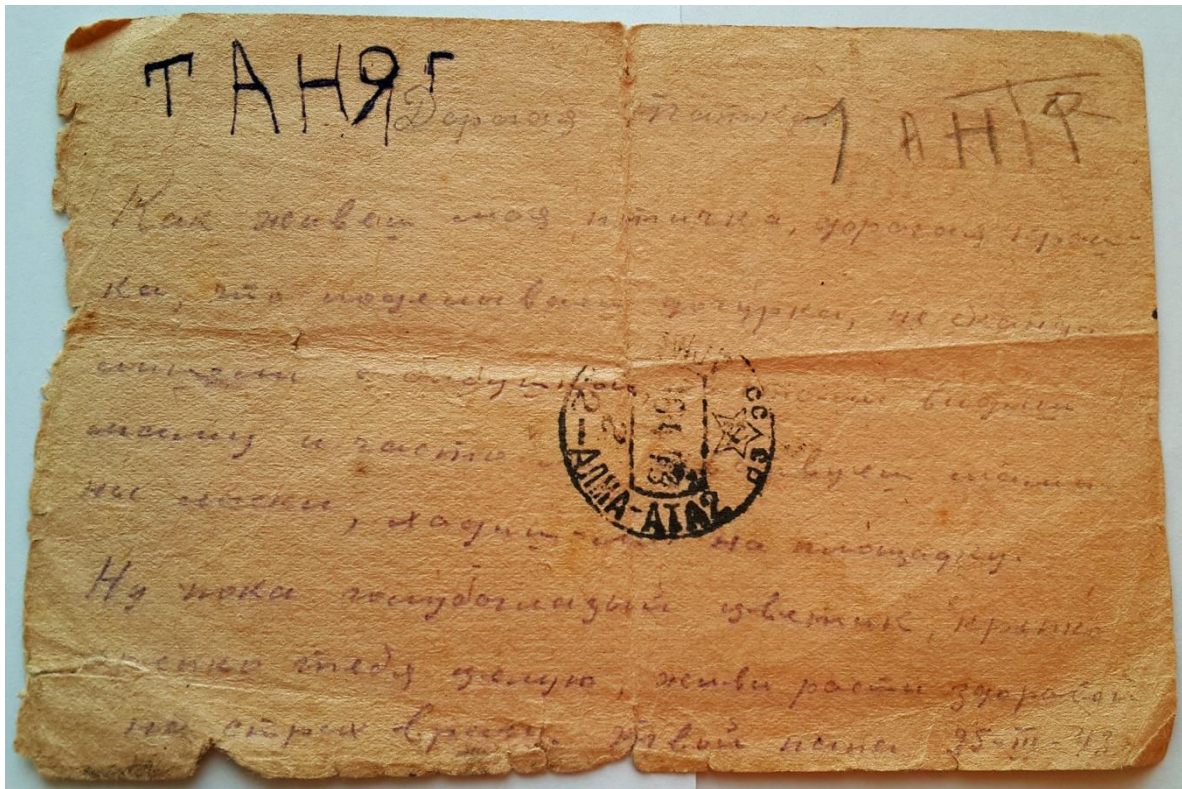 ТАНЯ
Дорогая Таничка
Как живеш моя птичка, дорогая крош-
ка, что поделывает дочурка, не
с видиш
маму и часто
ны ласки, ходиш-ли на площадку.
Ну пока голубоглазый цветик, крепко
крепко тебя целую, живи расти здоровой
на страх врагу. Твой папа 25-III-43
СССР
АЛМА-АТА 2